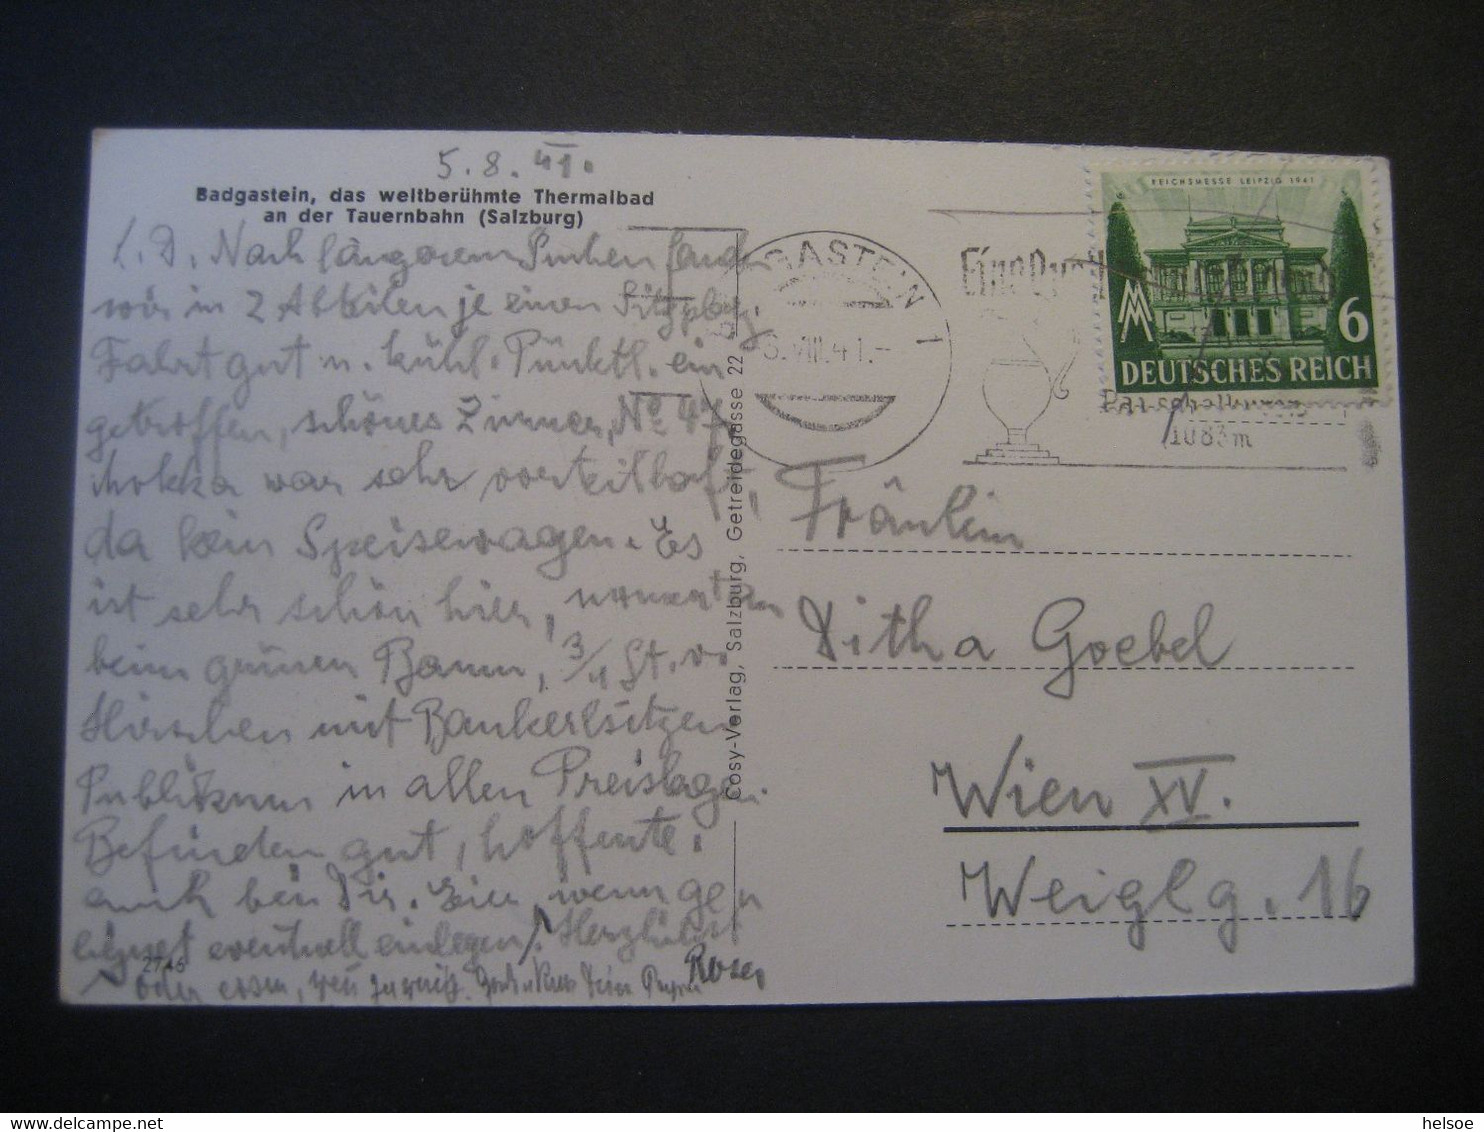 5.8.41.
Badgastein, das weltberühmte Thermalbad
an der Tauernbahn (Salzburg)
L. D. Nach längerem Suchen fanden
wir in 2 Abteilen je einen Sitzplatz.
Fahrt gut u. kühl. Pünktl. ein
getroffen, schönes Zimmer, No 47,
Mokka war sehr vorteilhaft,
da kein Speisewagen. Es
ist sehr schön hier,
beim grünen Baum, 3/4 St. v.
Hirschen mit Bankerlsitzen
Publikum in allen Preislagen.
Befinden gut, hoffentl.
auch bei Dir. Eier, wenn
eventuell einlegen! Herzlichst
oder essen, zu wenig. Deine
Rosa
2746
Cosy-Verlag, Salzburg, Getreidegasse 22
GASTEIN 1
VIII.41.-
Eine
1083m
REICHSMESSE LEIPZIG 1941
6
DEUTSCHES REICH
Fräulein
Ditha Goebel
Wien XV.
Weiglg. 16
helsoe